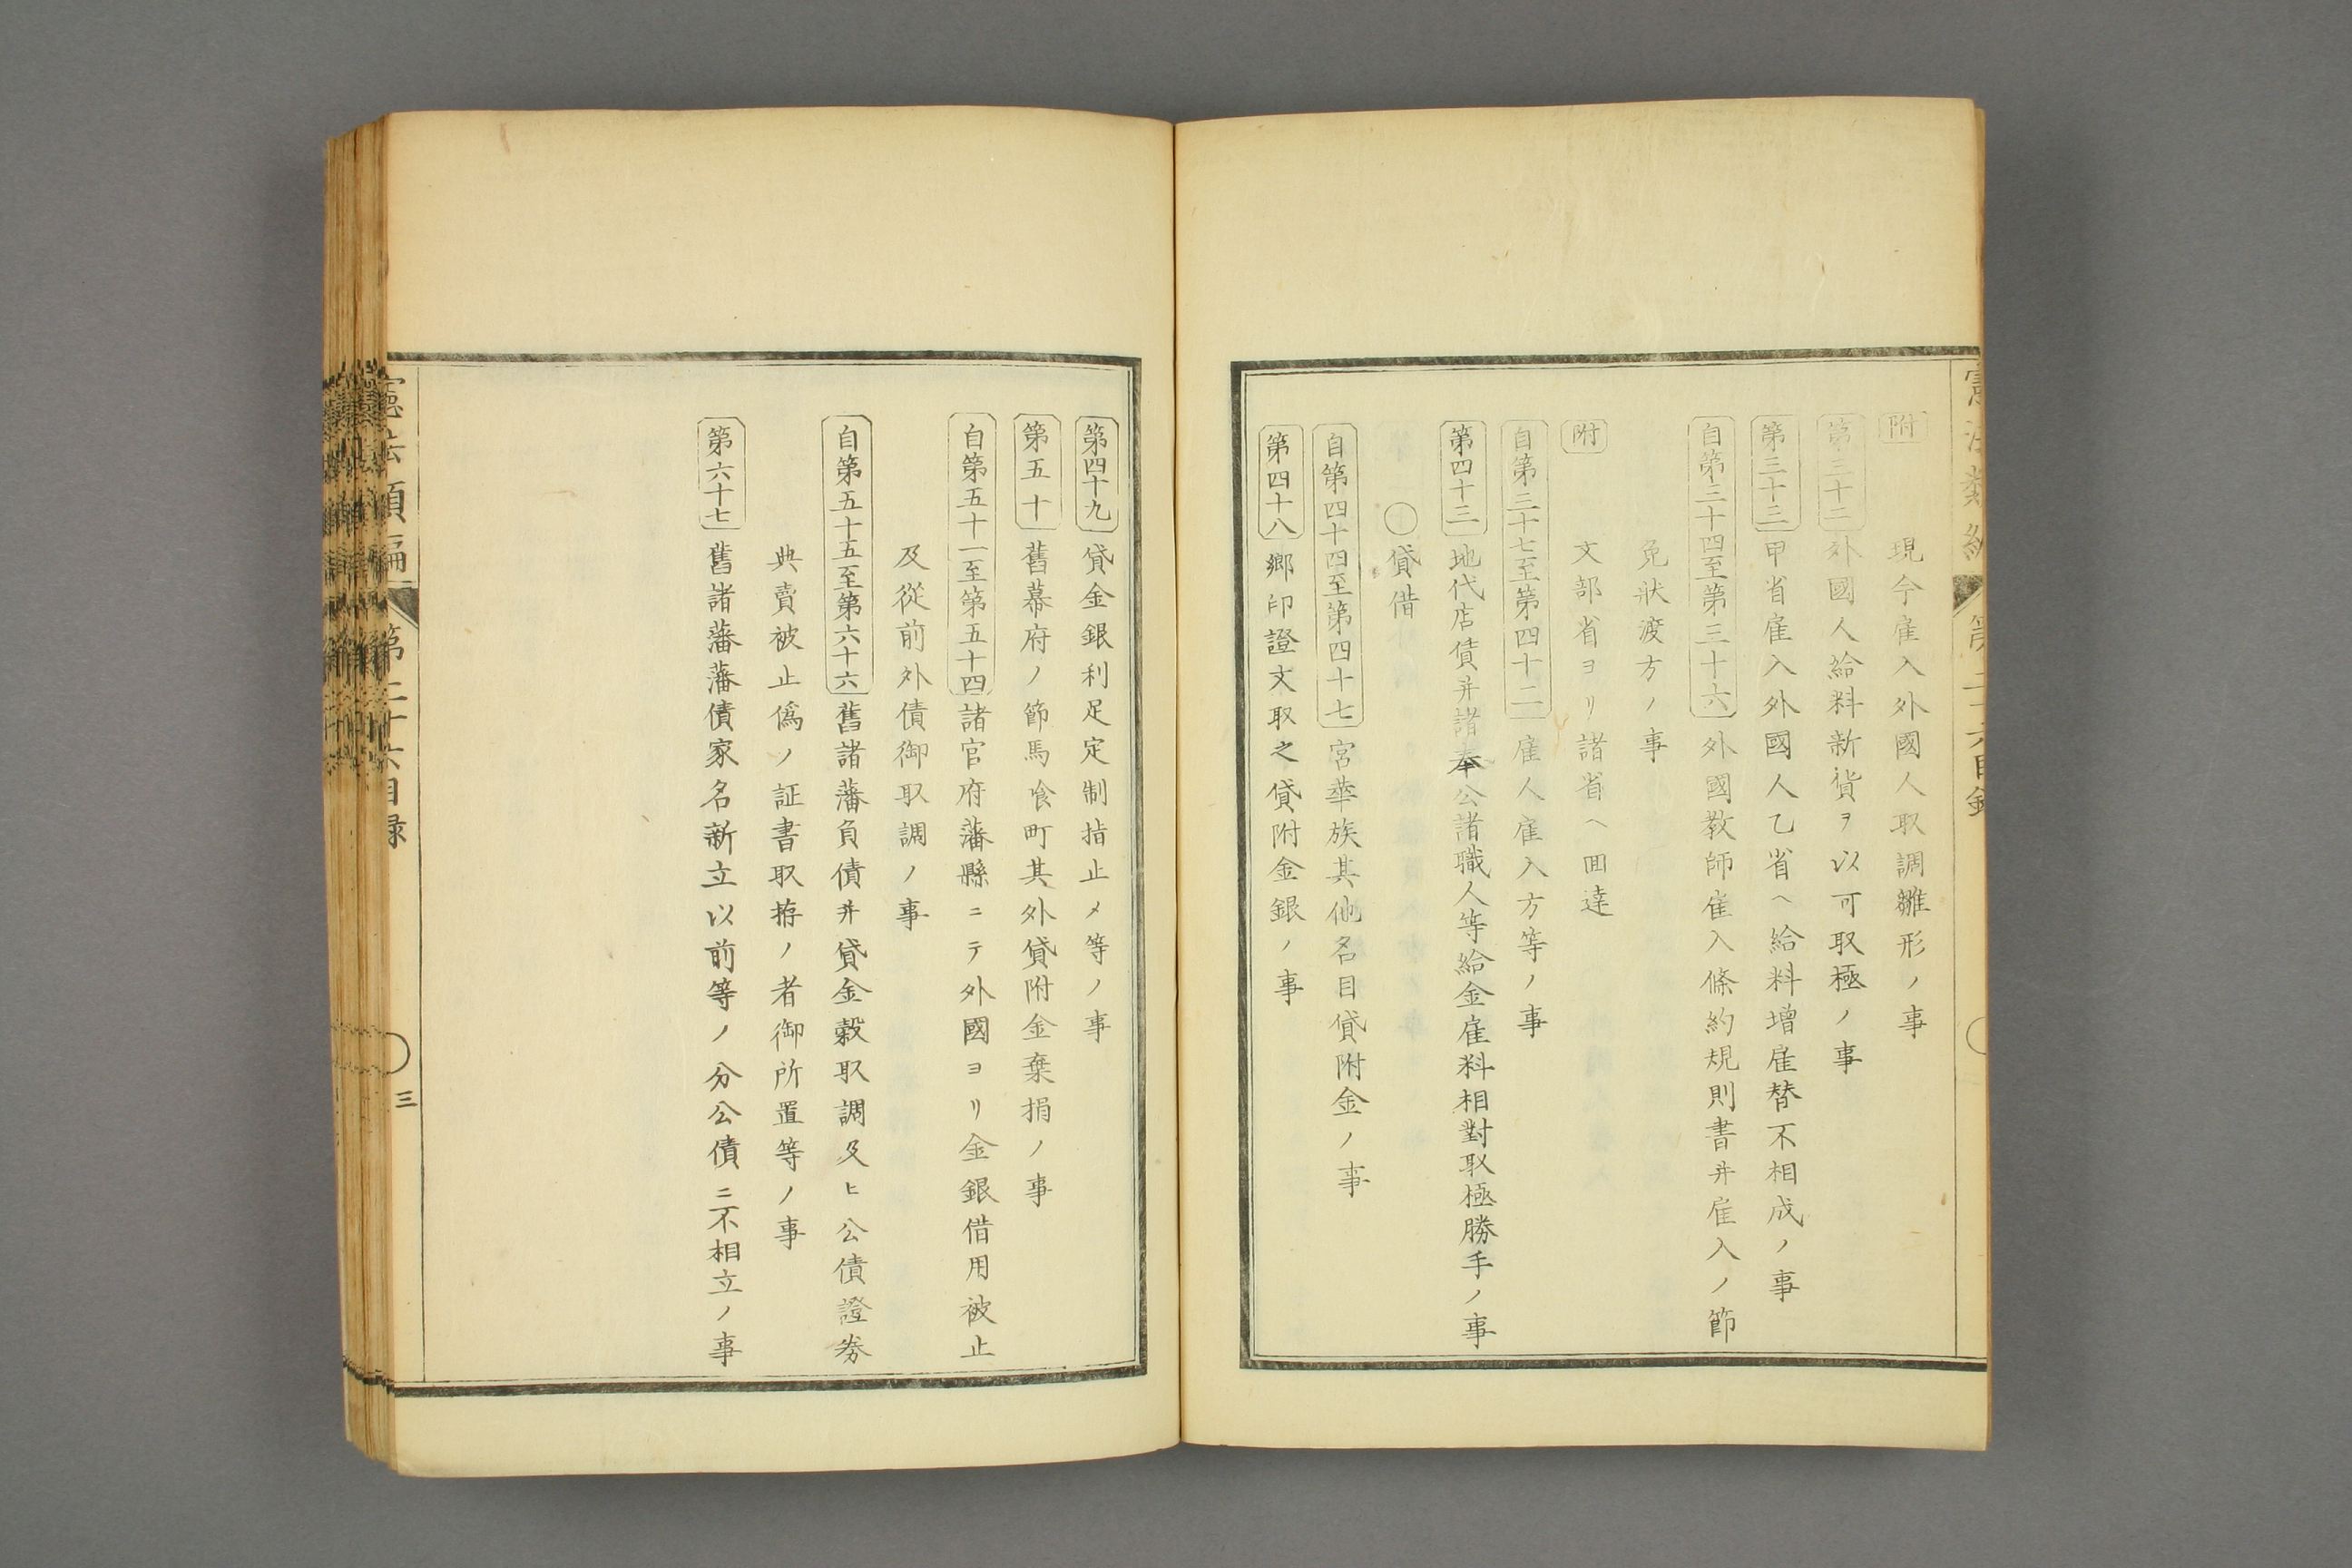 附 現今雇入外國人取調雛形ノ事
第三十二 外國人給料新貨ヲ以可取極ノ事
第三十三 甲省雇入外國人乙省ヘ給料增雇替不相成ノ事
自第三十四至第三十六 外國敎師雇入條約規則書幷雇入ノ節
免狀渡方ノ事
附 文部省ヨリ諸省ヘ回達
自第三十七至第四十二 雇人雇入方等ノ事
第四十三 地代店賃幷諸奉公諸職人等給金雇料相對取極勝手ノ事
○貸借
自第四十四至第四十七 宮華族其他名目貸附金ノ事
第四十八 鄉印證文取之貸附金銀ノ事
第四十九 貸金銀利足定制指止メ等ノ事
第五十 舊幕府ノ節馬喰町其外貸附金棄捐ノ事
自第五十一至第五十四 諸官府藩縣ニテ外國ヨリ金銀借用被止
及從前外債御取調ノ事
自第五十五至第六十六 舊諸藩負債幷貸金穀取調及ヒ公債證券
典賣被止僞ノ証書取拵ノ者御所置等ノ事
第六十七 舊諸藩藩債家名新立以前等ノ分公債ニ不相立ノ事
憲法類編 第二十六目錄 三